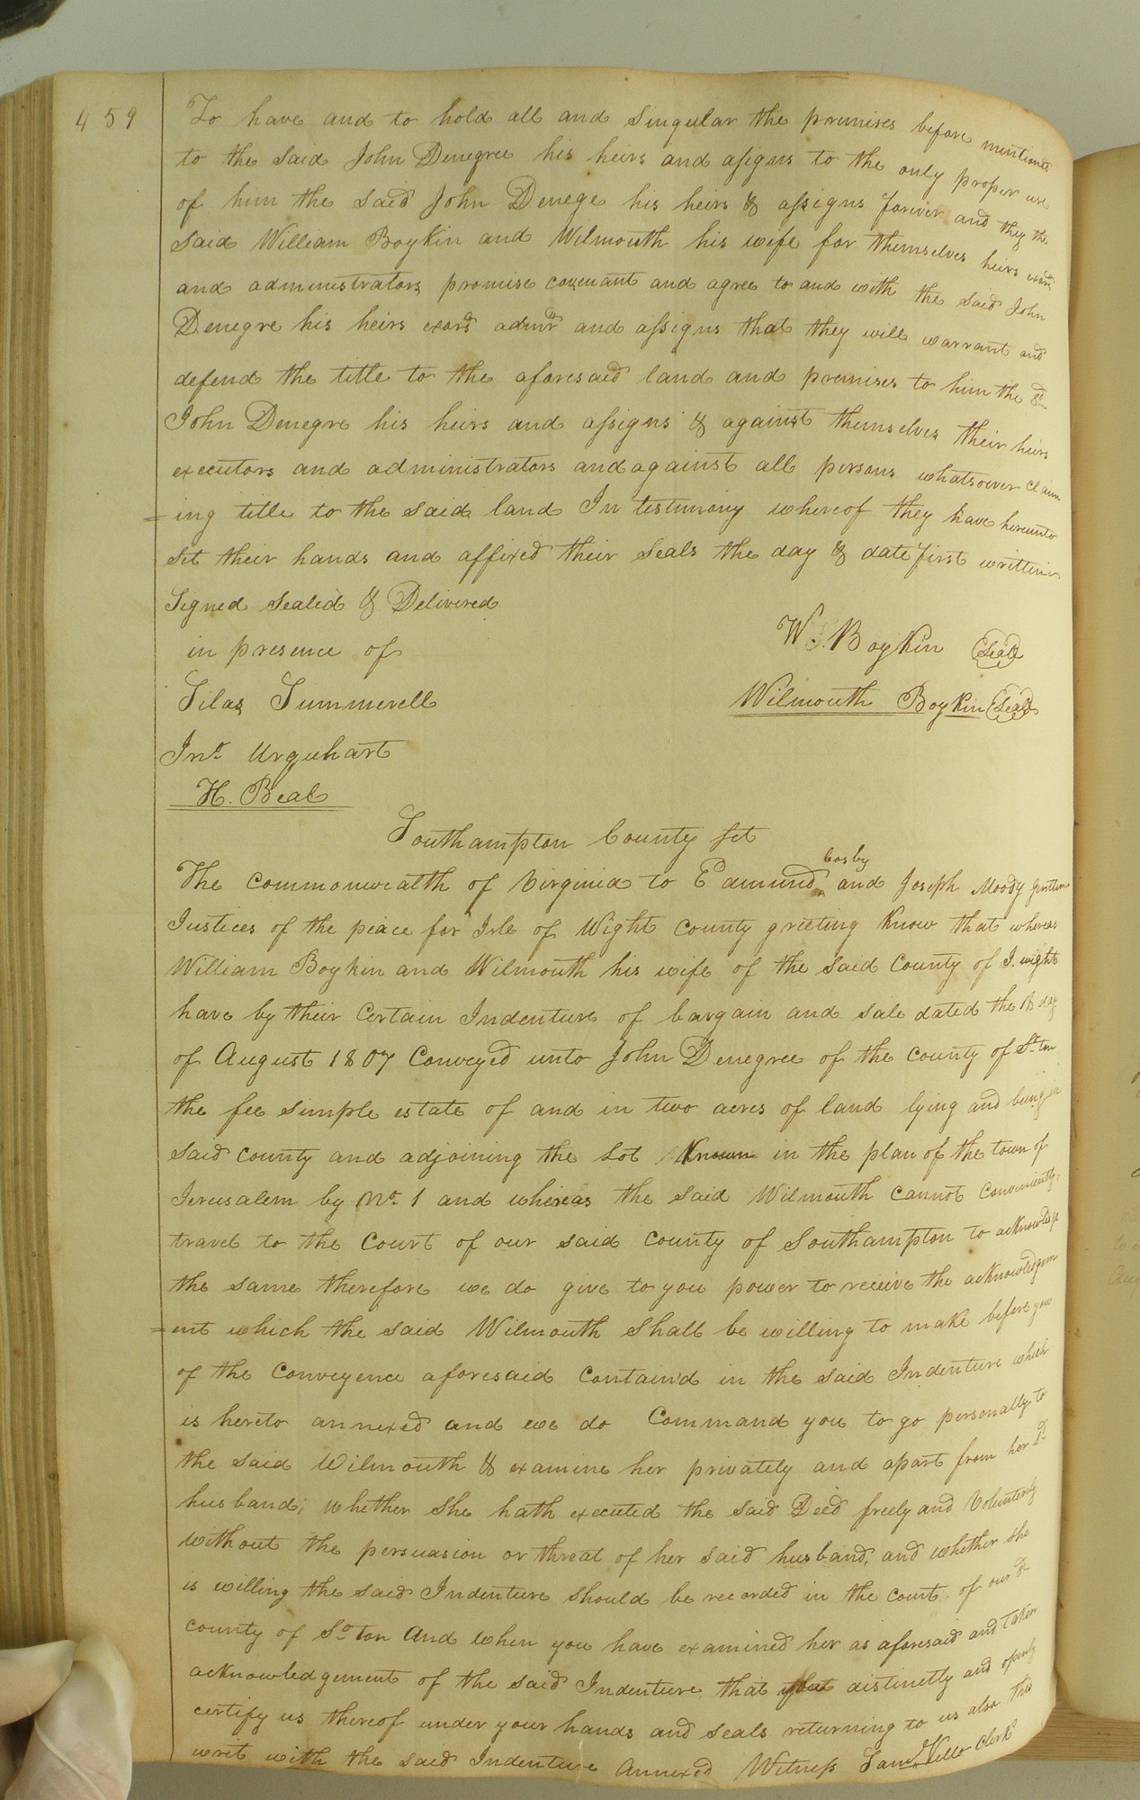 459
To have and to hold all and singular the premises before mentioned
to the said John Denegree his heirs and assigns to the only proper use
of him the said John Denege his heirs & assigns forever and they the
said William Boykin and Wilmouth his wife for themselves heirs
and administrators promise covenant and agree to and with the said John
Denegre his heirs exors admrs and assigns that they will warrant and
defend the title to the aforesaid land and premises to him the sd
John Denegre his heirs and assigns & against themselves their heirs
executors and administrators and against all persons whatsoever claim
=ing title to the said land In testimony whereof they have hereunto
set their hands and affixed their seals the day & date first written
Signed sealed & Delivered
in presence of
W. S. Boykin (Seal)
Silas Summerell
Wilmouth Boykin (Seal)
Jno Urquhart
H. Beal
Southampton County Sct
The commonwealth of Virginia to Edmund Cosby and Joseph Moody gentlemen
Justices of the peace for Isle of Wight county greeting Know that whereas
William Boykin and Wilmouth his wife of the said County of I. wight
have by their Certain Indenture of bargain and sale dated the 18 day
of August 1807 Conveyed unto John Denegree of the county of So ton
the fee simple estate of and in two acres of land lying and being in
said county and adjoining the Lot Known in the plan of the town of
Jerusalem by No. 1 and whereas the said Wilmouth cannot conveniently
travel to the Court of our said county of Southampton to acknowledge
the same therefore we do give to you power to receive the acknowledgem
=ent which the said Wilmouth shall be willing to make before you
of the Conveyence aforesaid Contain'd in the said Indenture which
is hereto annexed and we do Command you to go personally to
the said Wilmouth & examine her privately and apart from her sd
husband; whether she hath executed the said Deed freely and Voluntarly
without the persuasion or threat of her said husband, and whether she
is willing the said Indenture should be recorded in the court of our sd
county of So ton And when you have examined her as aforesaid and taken
acknowledgement of the said Indenture that distinctly and openly
certify us thereof under your hands and seals returning to us also this
writ with the said Indenture Annexed Witness Saml Kello Clerk